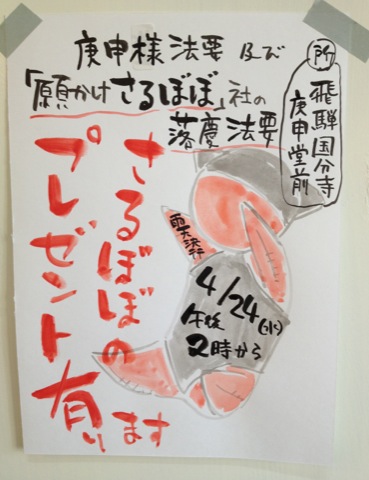 庚申様法要 及び
「願かけさるぼぼ」社の
落慶法要
所 飛騨国分寺
庚申堂前
さるぼぼの
プレゼント有ります
雨天決行
4/24(水)
午後
2時から